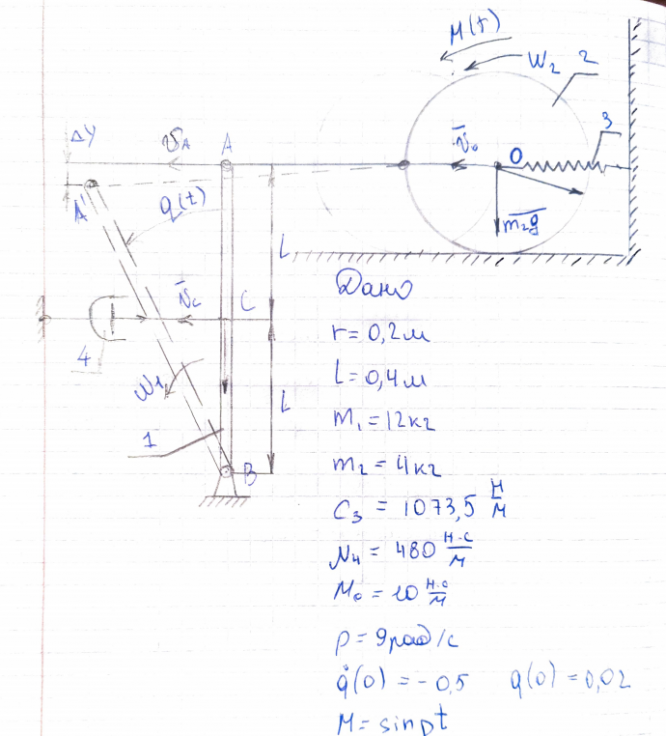 M(t)
ω₂ 2
ΔY
v_A A
3
v̄₀ O
A' q(t)
m₂g
L
v̄_c C
4
Дано
r = 0,2 м
ω₁
l = 0,4 м
L
1
m₁ = 12 кг
B
m₂ = 4 кг
C₃ = 1073,5 Н/м
μ₄ = 480 Н·с/м
M₀ = 10 Н·с/м
p = 9 рад/с
q̇(0) = -0,5 q(0) = 0,02
M = sin pt